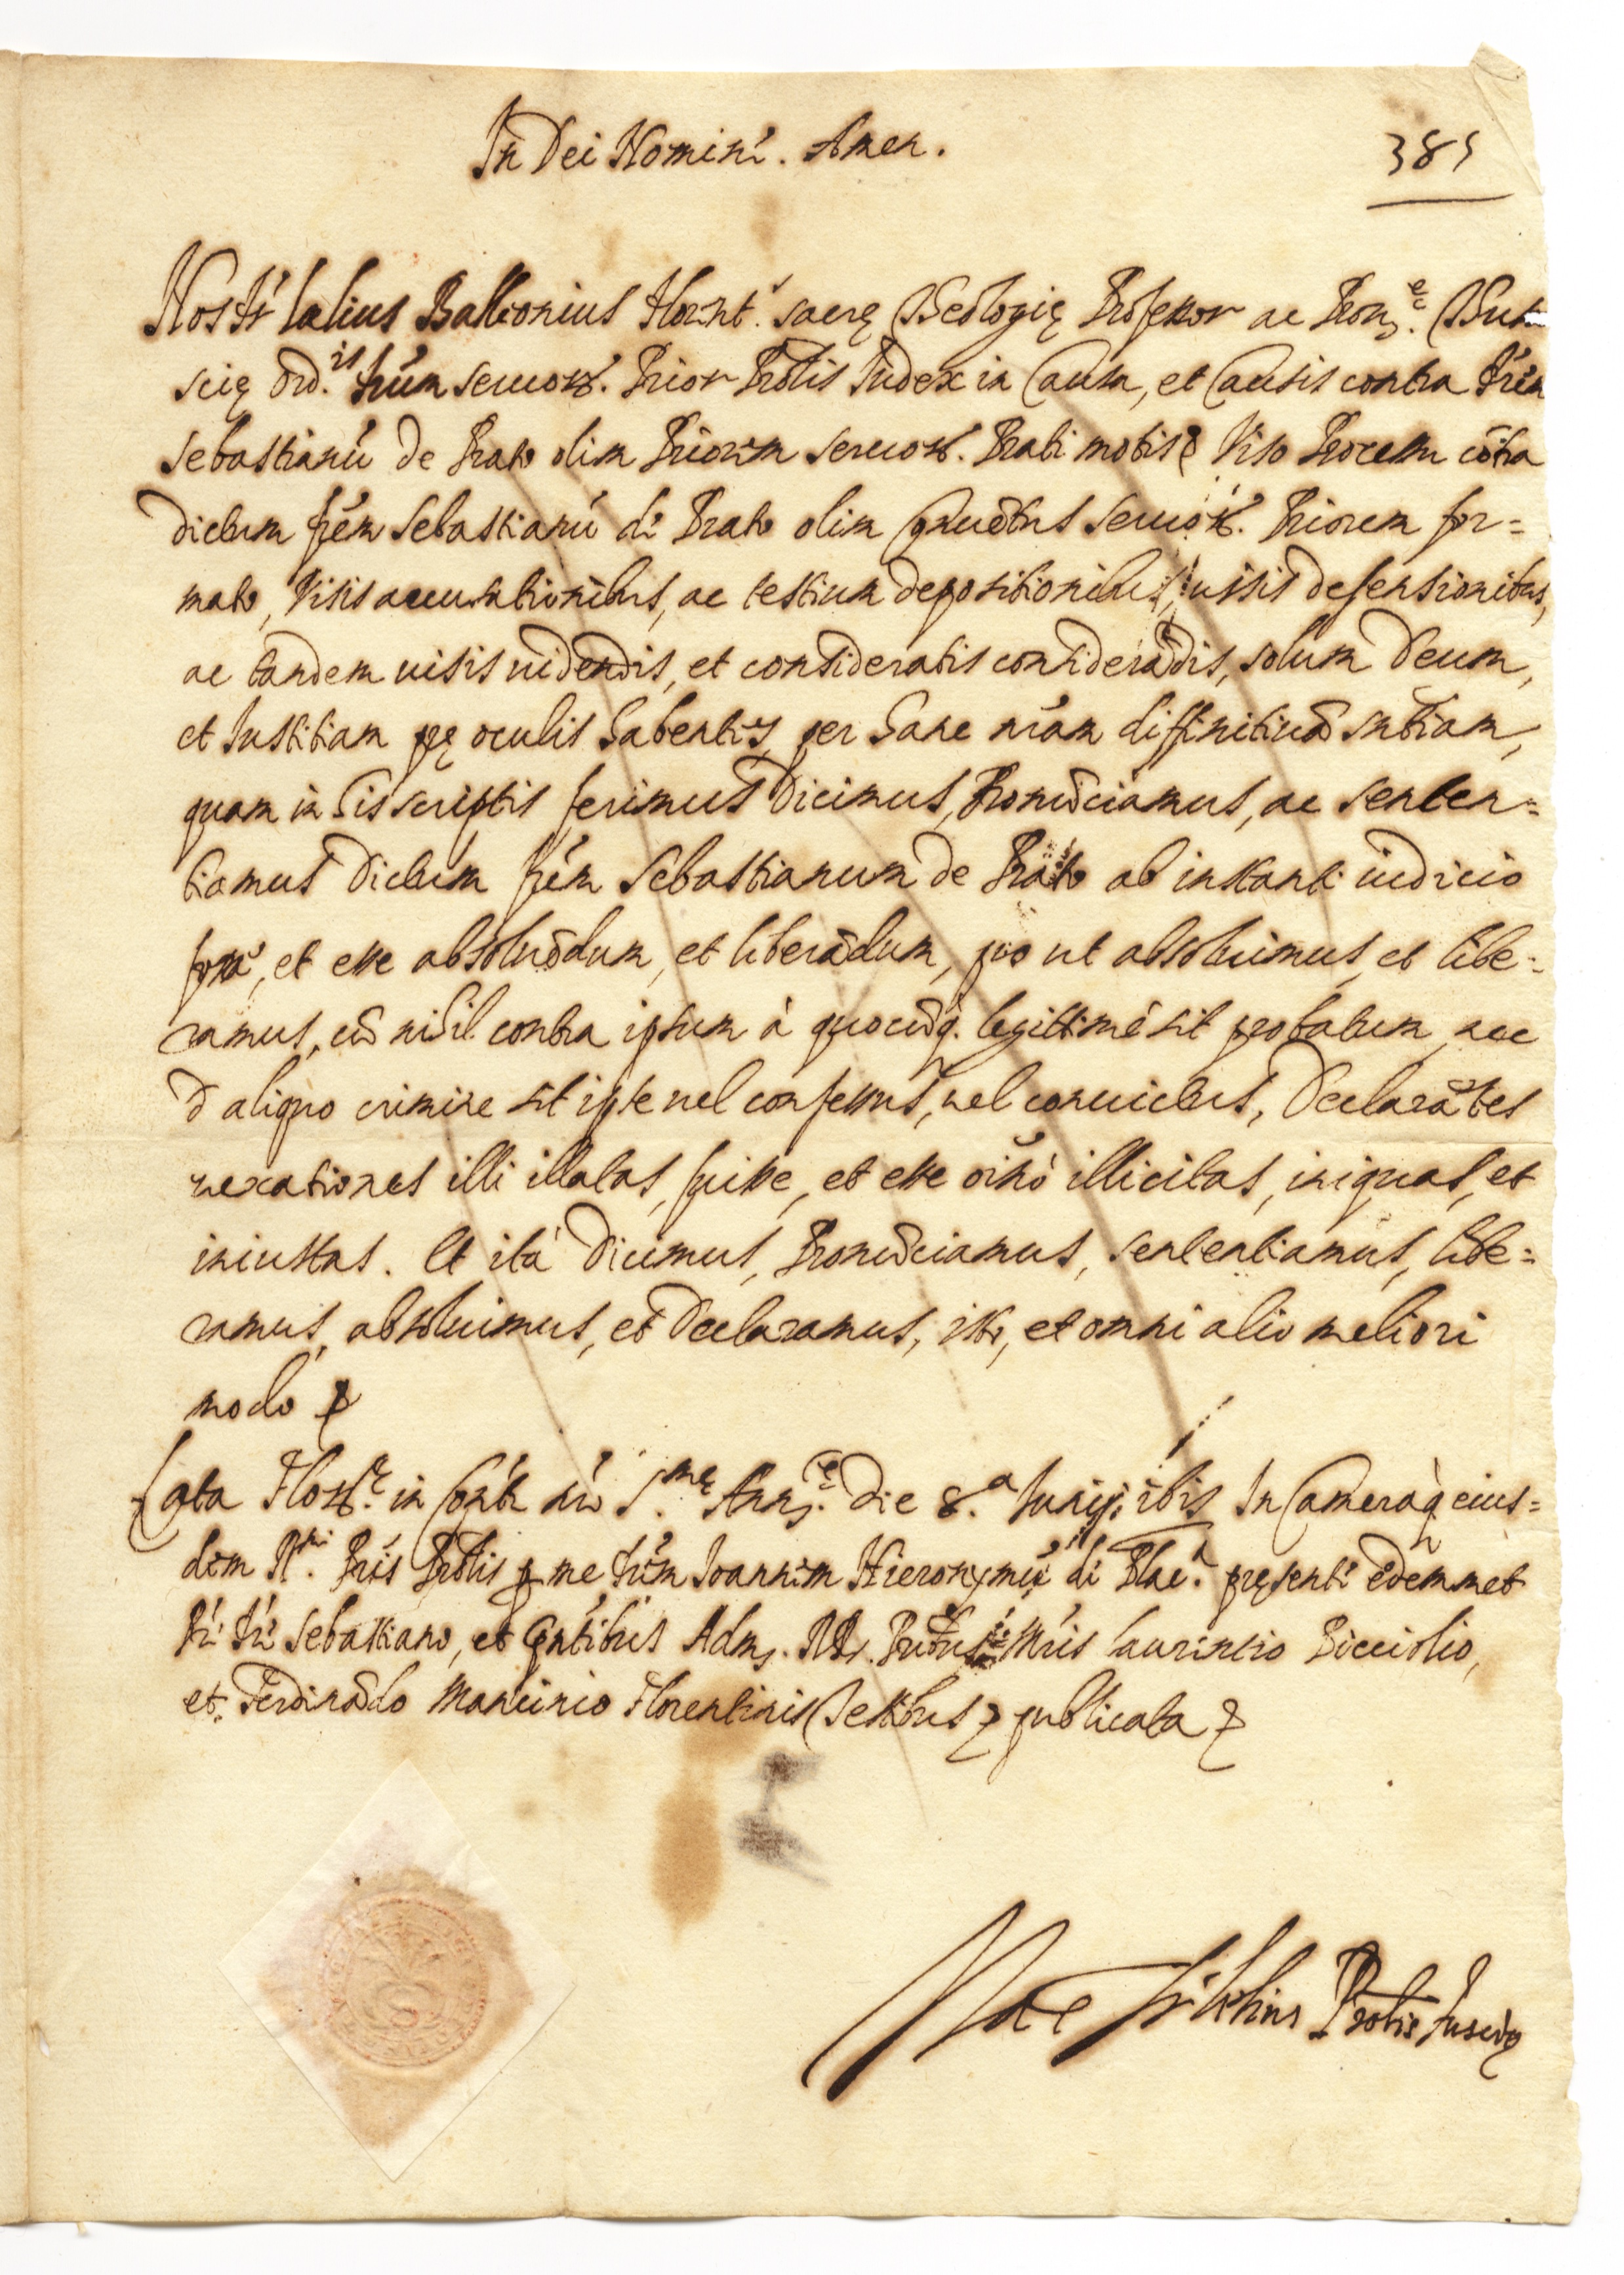 In Dei Nominé. Amen.
385
Nos fr̃ Lælius Ballionius Florent.ˢ sacrę Theologię Professor ac Prou.ᵉ Thu-
scię Ord.ⁱˢ frũm Seruor̃. Prior Prõlis Iudex in Causa, et Causis contra fr̃em
Sebastianũ de Prato olim Priorem Seruor̃. Prati motis Viso Processu cõtra
dictum fr̃em Sebastianũ de Prato olim Conuẽtus Seruor̃. Priorem for=
mato, Visis accusationibus, ac testium depositionibus, uisis defensionibus,
ac tandem uisis uidendis, et consideratis considerãdis, solum Deum,
et Iustitiam prę oculis habentes, per hanc nr̃am diffinitiuã sñtiam,
quam in his scriptis ferimus Dicimus, Pronũciamus, ac senten=
tiamus Dictum fr̃em Sebastianum de Prato ab instanti iudicio
fore, et esse absoluẽdum, et liberãdum, pro ut absoluimus, et libe=
ramus, cũ nihil contra ipsum à quocũq. legittimè sit probatum, nec
d aliquo crimine sit ipse uel confessus, uel conuictus, Declarãtes
uexationes illi illatas, fuisse, et esse oĩnò illicitas, iniquas, et
iniustas. Et ità Dicimus, Pronũciamus, sententiamus, libe=
ramus, absoluimus, et Declaramus, isto, et omni alio meliori
modo
Lata Flor.ᵉ in Conũ nr̃o S.ᵐᵉ Ann.ᵉ Die 8.ᵃ Iunij, In Camera q eius=
dem R.ᵈⁱ Pr̃is Prõlis p me fr̃em Ioannem Hieronymũ de pręsenti edemmet
fr̃e Sebastiano, et pñtibus Adm. RR. Mr̃is Laurentio Picciolio,
et Ferdinãdo Mancinio Florentinis Testibus publicata
Prõlis Tuscię